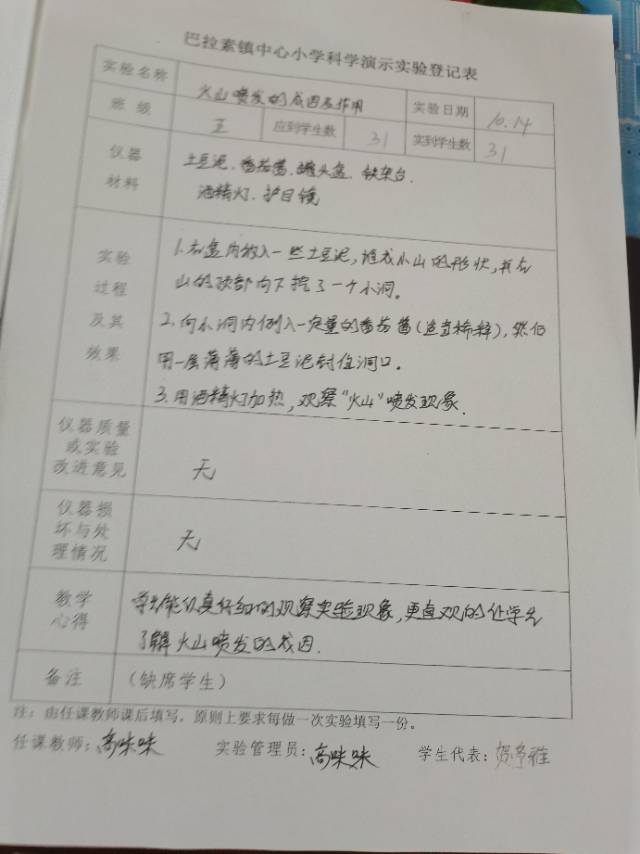 巴拉素镇中心小学科学演示实验登记表
实验名称 火山喷发的成因及作用 实验日期 10.14
班级 五 应到学生数 31 实到学生数 31
仪器材料 土豆泥、番茄酱、罐头盒、铁架台、
酒精灯、护目镜
实验过程及其效果
1.在盒内放入一些土豆泥,堆成小山的形状,并在
山的顶部向下挖了一个小洞。
2.向小洞内倒入一定量的番茄酱(适当稀释),然后
用一层薄薄的土豆泥封住洞口。
3.用酒精灯加热,观察“火山”喷发现象.
仪器质量或实验改进意见 无
仪器损坏与处理情况 无
教学心得 学生能认真仔细的观察实验现象,更直观的让学生
了解火山喷发的成因.
备注 (缺席学生)
注:由任课教师课后填写,原则上要求每做一次实验填写一份。
任课教师:高咪咪 实验管理员:高咪咪 学生代表: